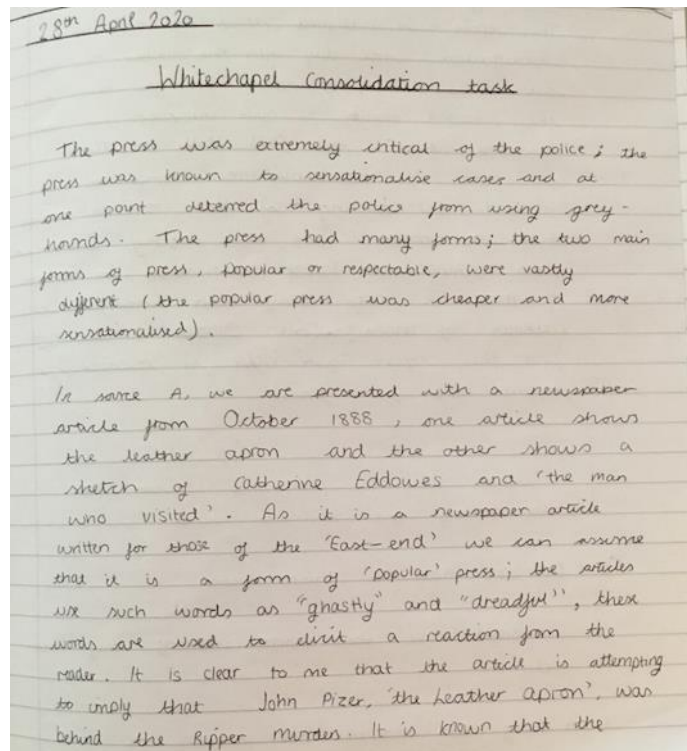 28th April 2020
Whitechapel Consolidation task
The press was extremely critical of the police; the
press was known to sensationalise cases and at
one point deterred the police from using grey-
hounds. The press had many forms; the two main
forms of press, Popular or respectable, were vastly
different (the popular press was cheaper and more
sensationalised).
In source A, we are presented with a newspaper
article from October 1888, one article shows
the leather apron and the other shows a
sketch of Catherine Eddowes and 'the man
who visited'. As it is a newspaper article
written for those of the 'East-end' we can assume
that it is a form of 'popular' press; the articles
use such words as "ghastly" and "dreadful", these
words are used to elicit a reaction from the
reader. It is clear to me that the article is attempting
to imply that John Pizer, 'the Leather apron', was
behind the Ripper murders. It is known that the